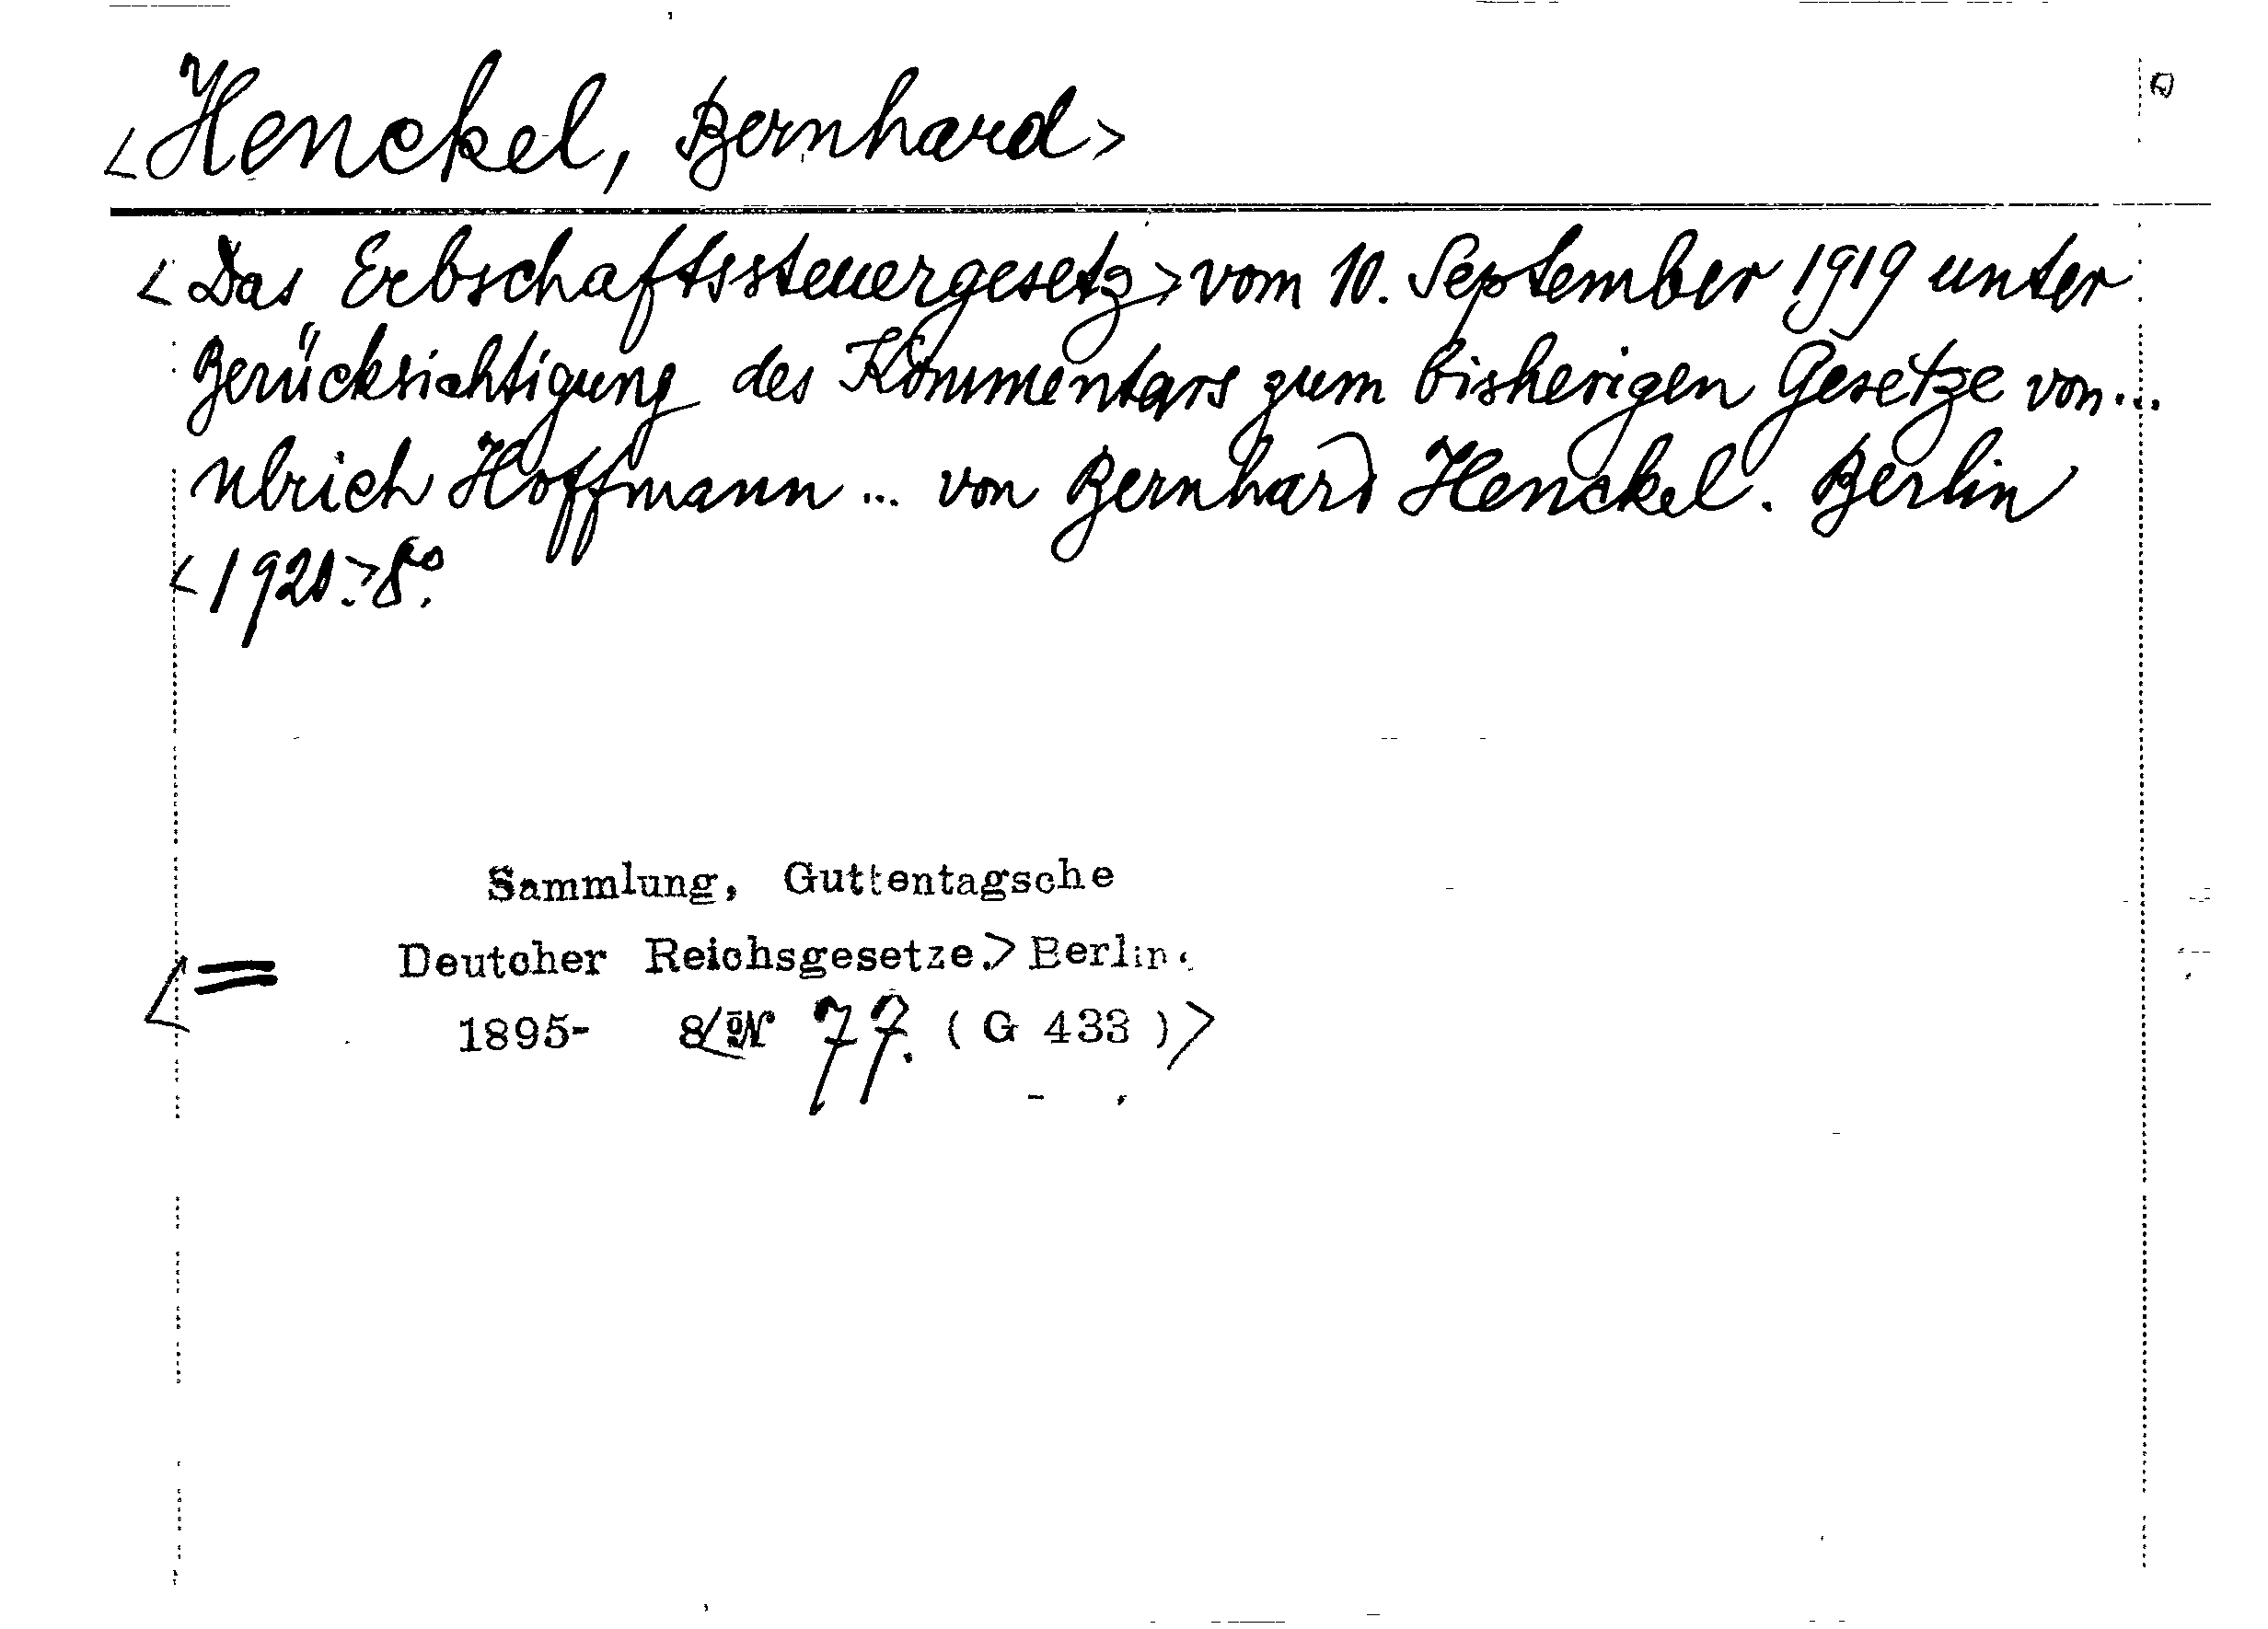 <Henckel, Bernhard>
<Das Erbschaftssteuergesetz> vom 10. September 1919 unter
Berücksichtigung des Kommentars zum bisherigen Gesetze von...
Ulrich Hoffmann ... von Bernhard Henckel. Berlin
<1920.> 8°.
Sammlung, Guttentagsche
<= Deutcher Reichsgesetze.> Berlin.
1895- 8<° N 77. ( G 433 )>